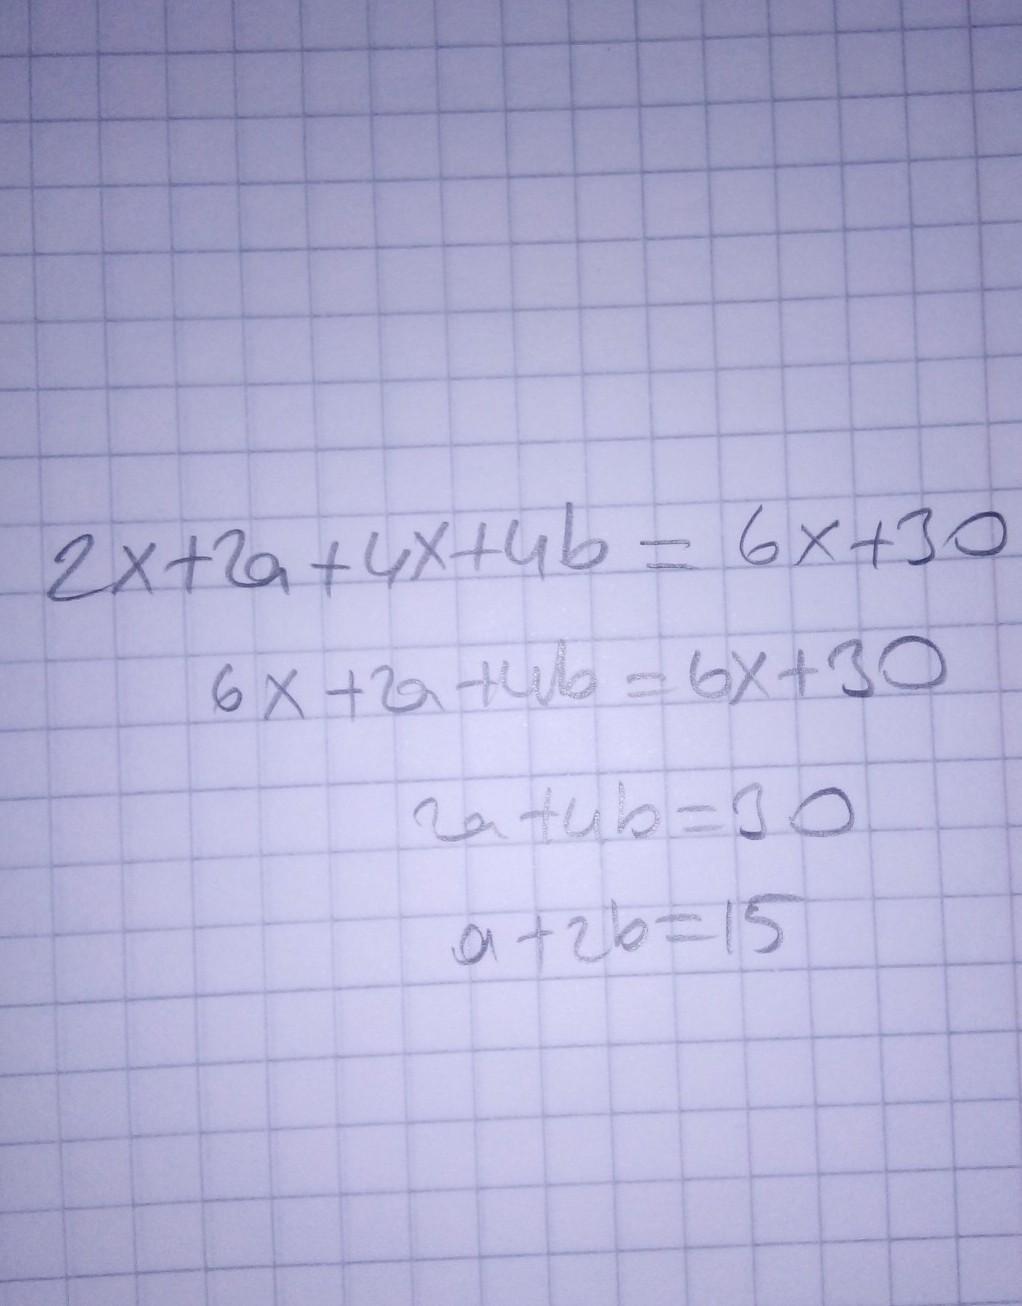 2x+2a+4x+4b=6x+30
6x+2a+4b=6x+30
2a+4b=30
a+2b=15